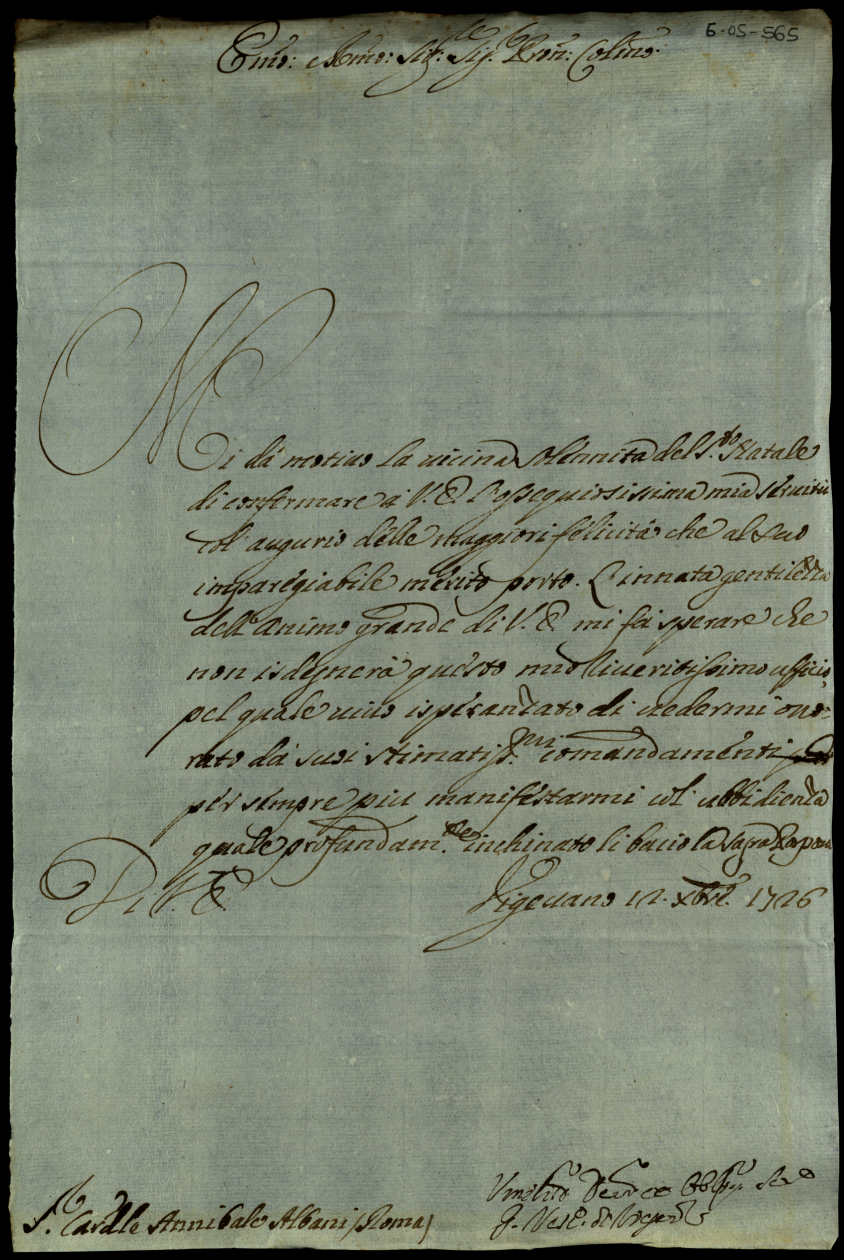 6-05-565
Emo: Rmo: Sig:re Sig:r Pron: Colmo:
Mi dà motivo la vicina solennità del S.to Natale
di confermare à V. E. l'ossequiosissima mia servitù
col' augurio delle maggiori felicità che al suo
imparegiabile merito porto. L'innata gentilezza
dell'animo grande di V. E. mi fà sperare che
non isdegnerà questo mio riveritissimo ufficio,
pel quale vivo isperanzato di vedermi ono:
rato dà suoi stimatiss.mi comandamenti
per sempre più manifestarmi col' ubbidienza
quale profundam.te inchinato li bacio la sagra Porpora
Di V. E.
Vigevano 12. Xbre. 1726
S.r Cardle Annibale Albani / Roma /
Umilmo Devmo Obbmo Sere
G. Vesc.o di Vigevo